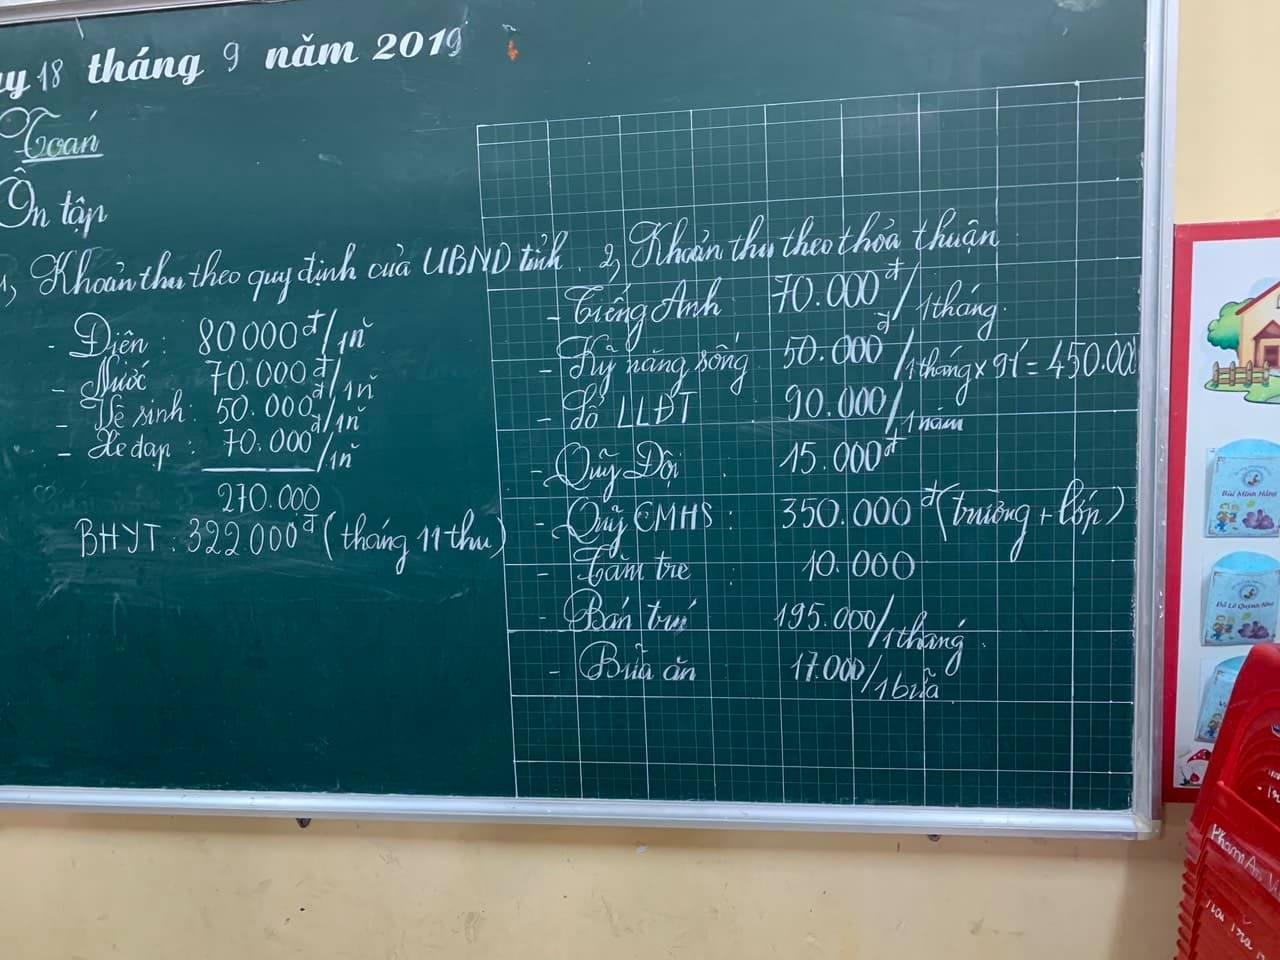 18 tháng 9 năm 2019
Toán
Ôn tập
1, Khoản thu theo quy định của UBND tỉnh.
- Điện : 80000đ/1n
- Nước 70.000đ/1n
- Vệ sinh: 50.000đ/1n
- Xe đạp : 70.000đ/1n
270.000
BHYT : 322.000đ (tháng 11 thu)
2, Khoản thu theo thỏa thuận
- Tiếng Anh : 70.000đ/1tháng.
- Kỹ năng sống 50.000đ/1tháng x 9t = 450.00
- Sổ LLĐT : 90.000/1năm
- Quỹ Đội : 15.000đ
- Quỹ CMHS : 350.000đ (trường + lớp)
- Tăm tre : 10.000
- Bán trú 195.000/1tháng.
- Bữa ăn : 17.000/1bữa
Bùi Minh Hằng
Đỗ Lê Quỳnh Như